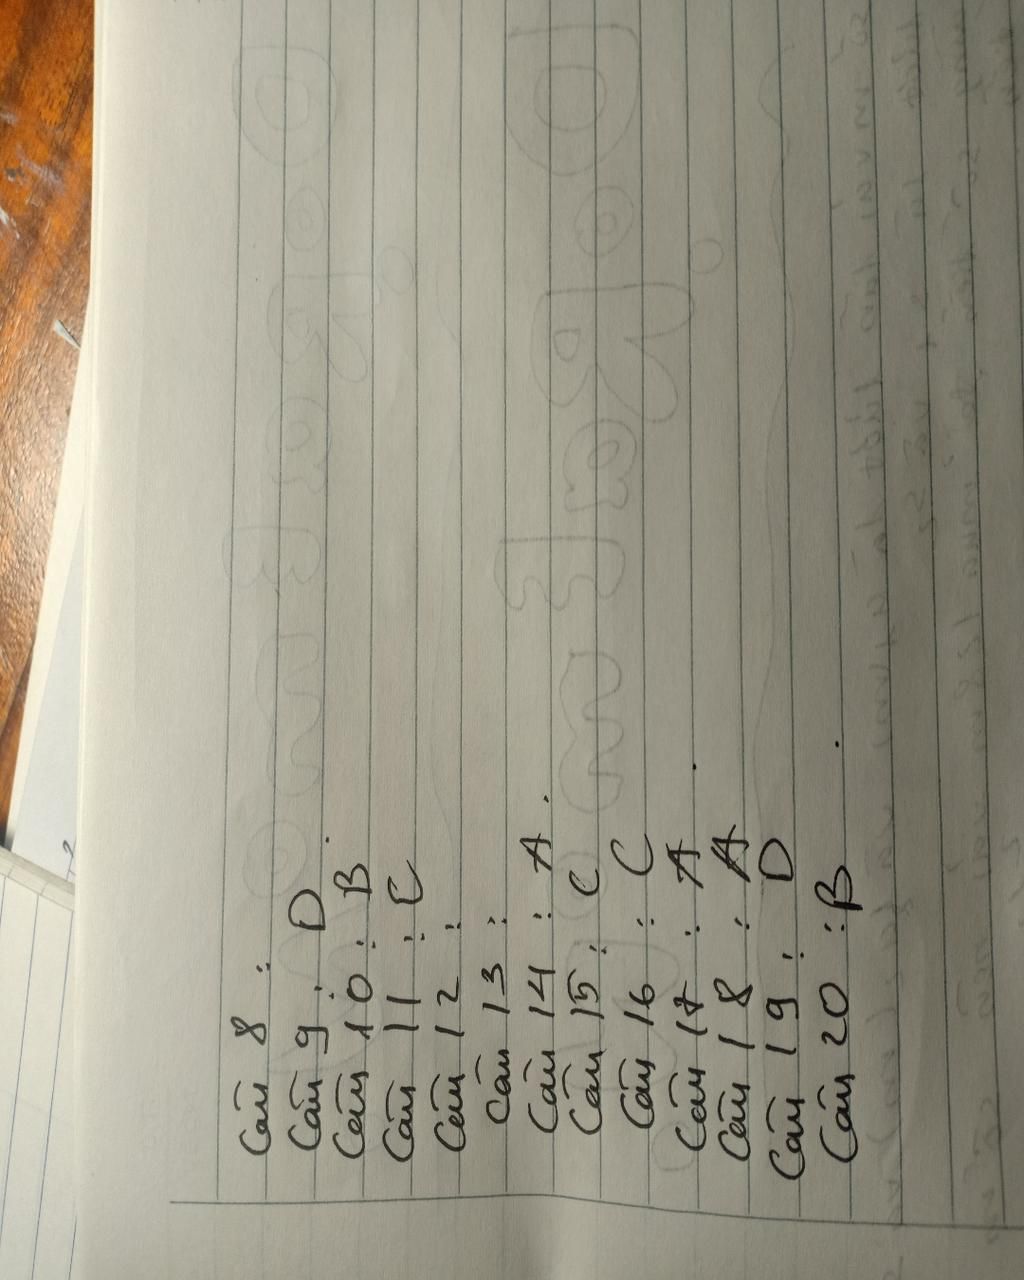 Câu 8 :
Câu 9 : D
Câu 10 : B
Câu 11 : C
Câu 12 :
Câu 13 :
Câu 14 : A
Câu 15 : C
Câu 16 : C
Câu 17 : A
Câu 18 : A
Câu 19 : D
Câu 20 : B